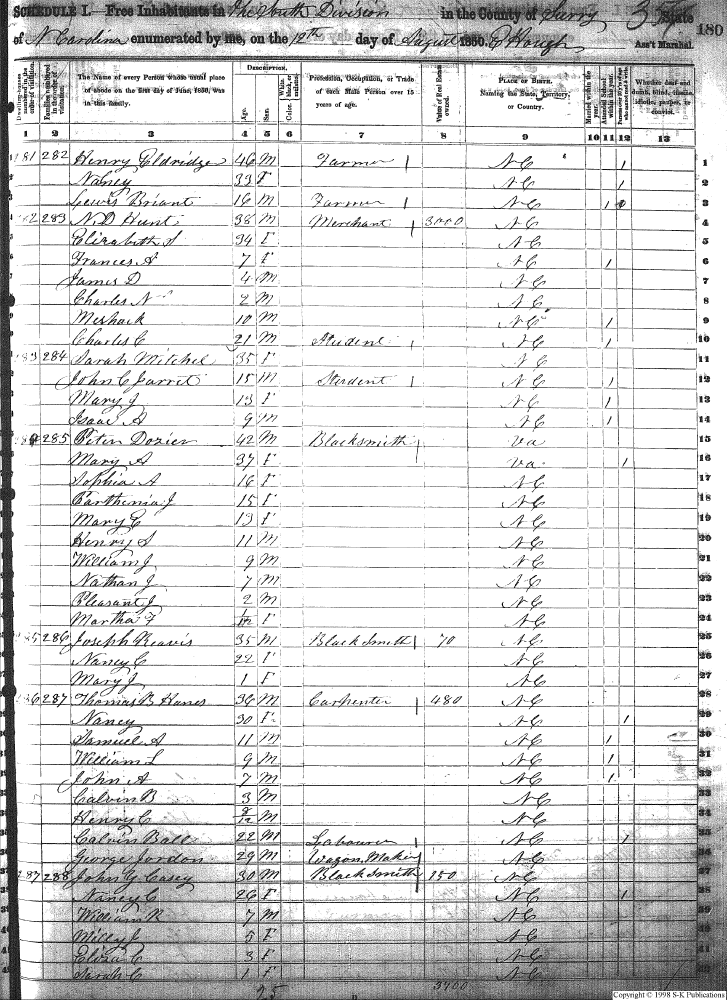 SCHEDULE I.- Free Inhabitants in The South Division in the County of Surry State
of N Carolina enumerated by me, on the 12th day of August 1850. Hough Ass't Marshal. 180
Dwelling-houses numbered in the order of visitation.
Families numbered in the order of visitation.
The Name of every Person whose usual place of abode on the first day of June, 1850, was in this family.
Description.
Age.
Sex.
Color, White, black, or mulatto.
Profession, Occupation, or Trade of each Male Person over 15 years of age.
Value of Real Estate owned.
Place of Birth. Naming the State, Territory, or Country.
Married within the year.
Attended School within the year.
Whether deaf and dumb, blind, insane, idiotic, pauper, or convict.
1 2 3 4 5 6 7 8 9 10 11 12 13
1 281 282 Henry Eldridge 46 M Farmer / NC / 1
Nancy 33 F NC / 2
Lewis Briant 16 M Farmer / NC 1 3
283 N D Hunt 38 M Merchant / 3000 NC 4
Elizabeth S 34 F NC 5
Frances A 7 F NC 1 6
James D 4 M NC 7
Charles N 2 M NC 8
Meshack 10 M NC 1 9
Charles C 21 M Student NC 1 10
284 Sarah Mitchel 35 F NC 11
John C Jarret 15 M Student / NC 1 12
Mary J 13 F NC 1 13
Isaac A 9 M NC 1 14
285 Peter Dozier 42 M Blacksmith / Va 15
Mary A 37 F Va / 16
Sophia A 16 F NC 17
Parthenia J 15 F NC 18
Mary E 13 F NC 19
Henry S 11 M NC 20
William J 9 M NC 21
Nathan J 7 M NC 22
Pleasant J 2 M NC 23
Martha F 1/12 F NC 24
286 Joseph Reavis 35 M Black Smith / 70 NC 25
Nancy C 22 F NC 26
Mary J 1 F NC 27
287 Thomas B Hanes 36 M Carpenter / 480 NC 28
Nancy 30 F NC / 29
Samuel A 11 M NC 1 30
William L 9 M NC 1 31
John A 7 M NC 1 32
Calvin B 3 M NC 33
Henry C 8/12 M NC 34
Calvin Ball 22 M Labourer / NC / 35
George Jordon 29 M Wagon Maker NC 36
287 288 John Y Casey 30 M Black Smith / 150 NC 37
Nancy C 26 F NC / 38
William R 7 M NC 39
Milly J 5 F NC
Eliza C 3 F NC
Sarah C 1 F NC
25 3700
Copyright © 1998 S-K Publications